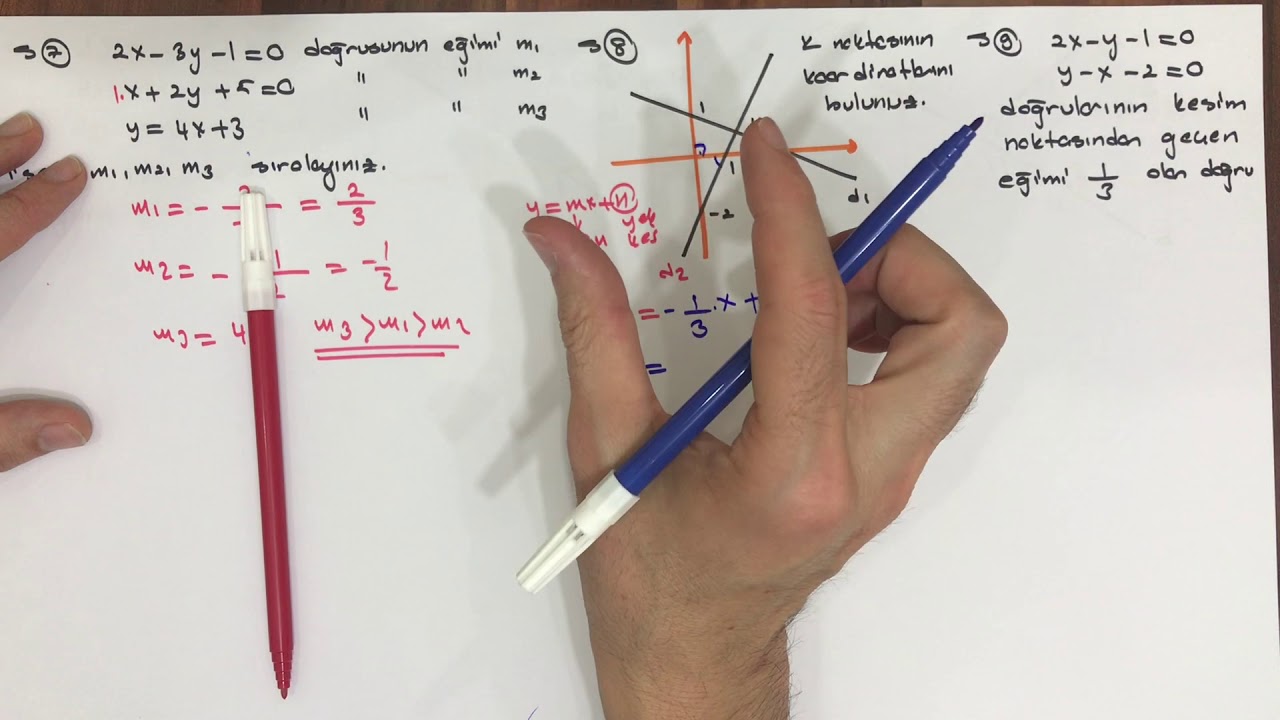 S 7
2x - 3y - 1 = 0 doğrusunun eğimi m1
1.x + 2y + 5 = 0 " " m2
y = 4x + 3 " " m3
m1, m2, m3 sıralayınız.
m1 = - = 2/3
m2 = - 1 = -1/2
m3 = 4
m3 > m1 > m2
S 8
K noktasının
koordinatlarını
bulunuz.
1
1
-2
d1
d2
y = mx + n
= -1/3 . x +
=
S 9
2x - y - 1 = 0
y - x - 2 = 0
doğrularının kesim
noktasından geçen
eğimi 1/3 olan doğru